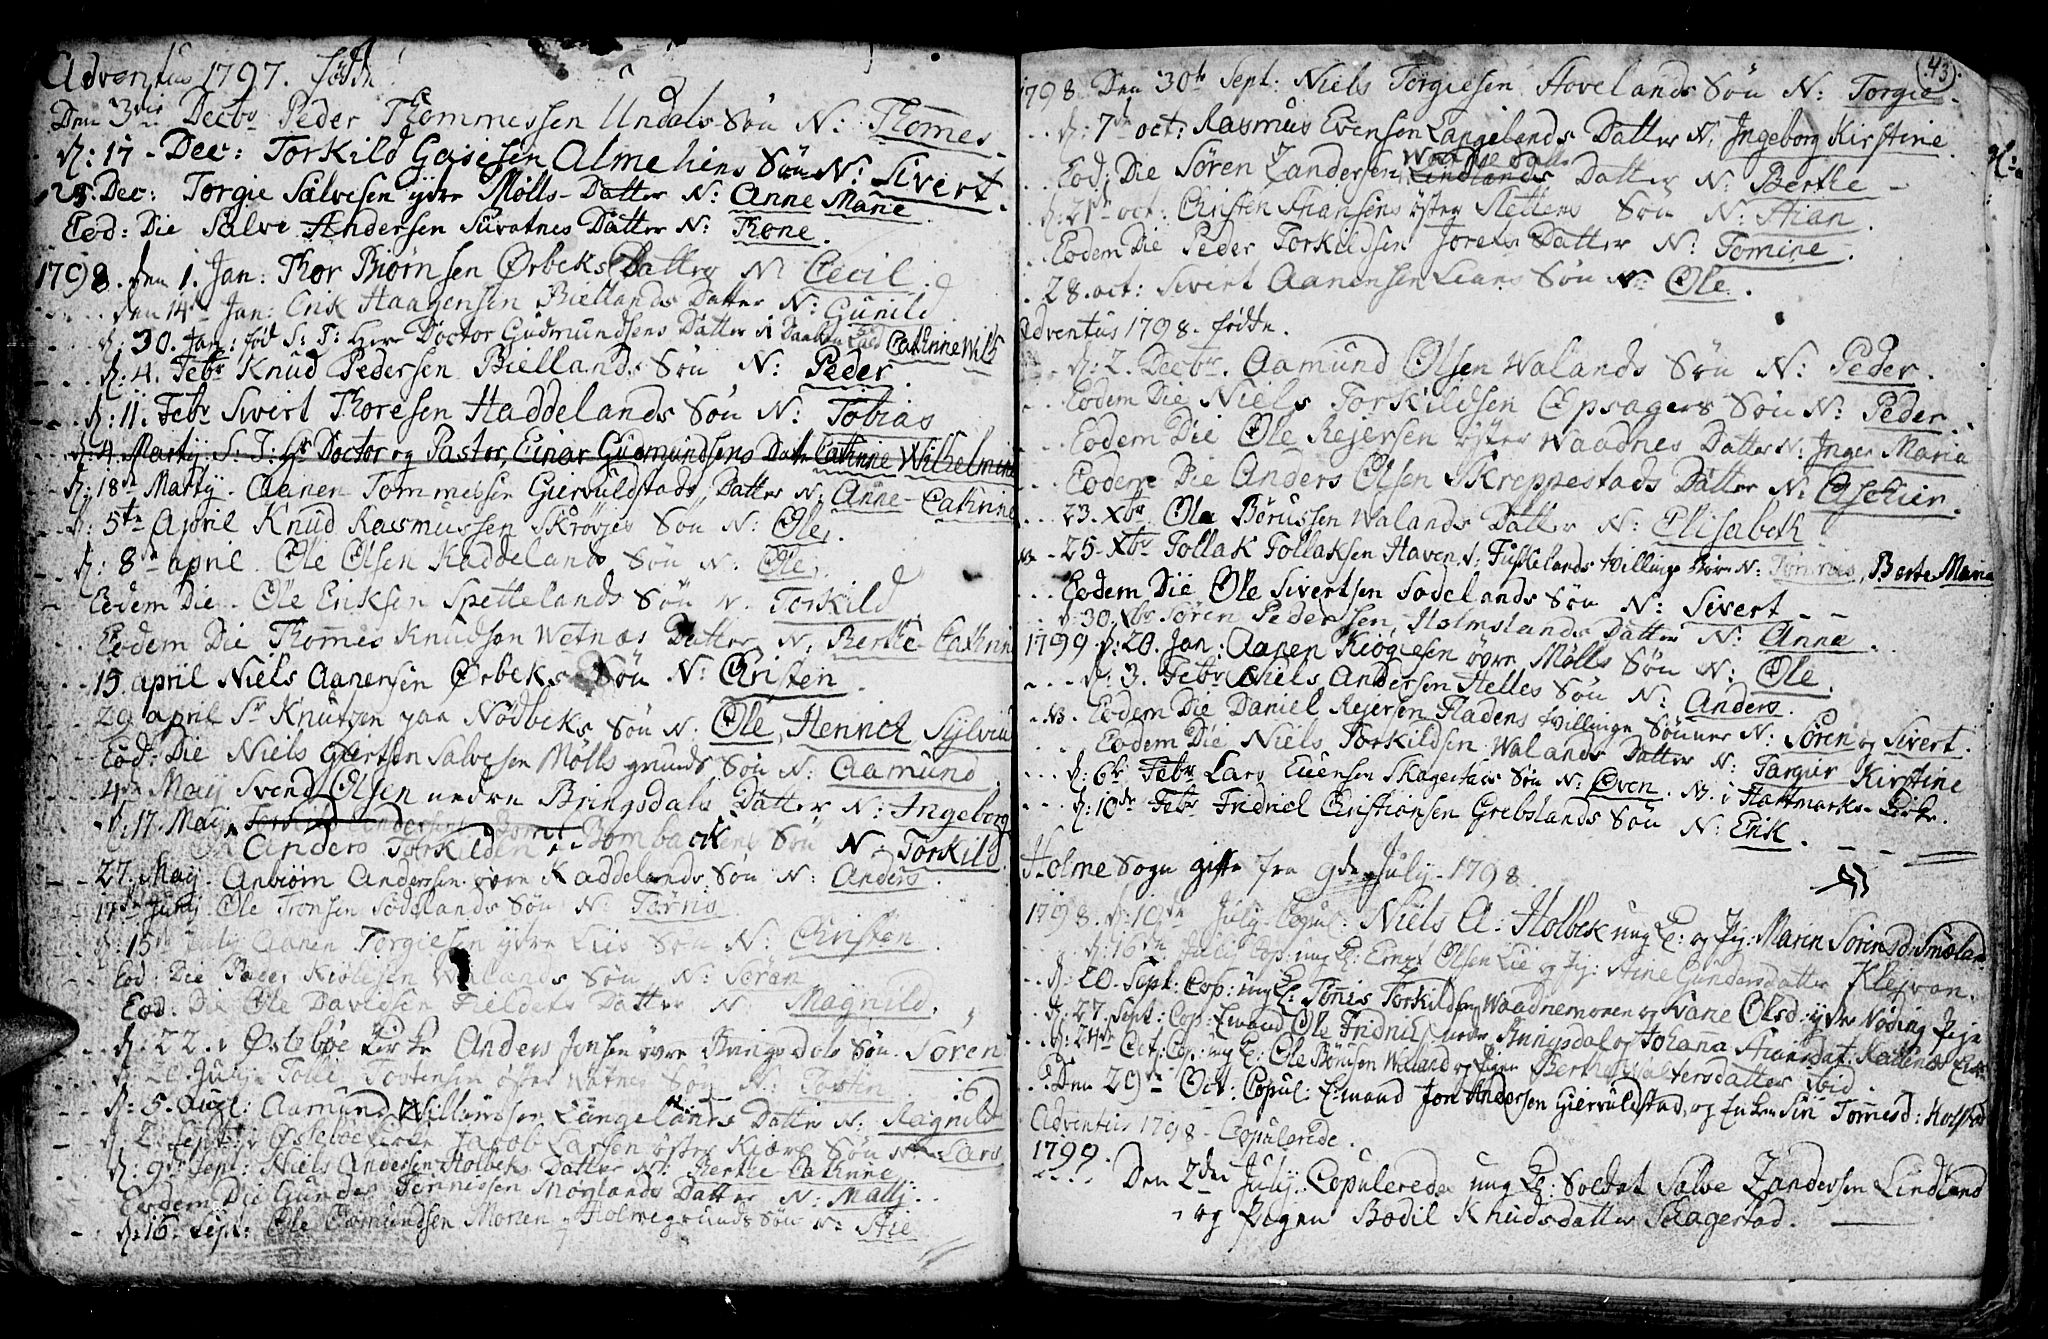 Adventus 1797. fødde
Den 3die Decbr Peder Thommessen Undals Søn N: Thomes.
d: 17 - Dec: Torkild Gasesen Alme hiens Søn N: Sivert.
25. Dec: Torgie Salvesen ydre Mølls - Datter N: Anne Marie
Eod: Die Salve Andersen Suvatnes Datter N: Thone.
1798. den 1. Jan: Thor Biørnsen Ørbeks Datter N: Cecil.
den 14 Jan: Erik Haagensen Biellands Datter N: Gunild.
d: 30. Jan: fød S: T: Herr Doctor Gudmundsens Datter i Daaben kald Cathinne Wilh
d: 4. Febr Knud Pedersen Biellands Søn N: Peder.
d: 11. Febr Sivert Thoresen Haddelands Søn N: Tobias
d: 4 Martij S: T: Hr Doctor og Pastor, Einar Gudmundsens Datt Cathinne Wilhelmine
d: 18de Martij - Aanen Tommesen Giervuldstads Datter N: Anne - Cathrine
d: 5te April Knud Rasmussen Skrøvjes Søn N: Ole.
d: 8de april. Ole Olsen Kaddelands Søn N: Ole.
Eodem Die - Ole Eriksen Spettelands Søn N. Torkild
Eodem Die Thommes Knudsen Wetnæs Datter N: Berthe - Cathrin
15 april Niels Aanensen Ørbeks Søn N: Christen.
29 april Sr Knutzen paa Nødbeks Søn N: Ole, Henrich Sylvius
Eod: Die Niels Giertsen Salvesen Mølls grunds Søn N: Aamund
4de Maij Svend Olsen nedre Bringsdals Datter N: Ingeborg
d: 17. Maij Torkild Andersens
Anders Torkilden i Bombackens Søn N: Torkild.
27. Maij. Anbiørn Andersen øvre Kaddelands Søn N: Anders.
Ole Tronsen Sødelands Søn N: Tørris
d: 15 July Aanen Torgiesen ydre Lies Søn N: Christen.
Eod: Die Peder Walands Søn N: Søren
Eod: Die Ole Davidsen Fieldets Datter N: Magnild.
d: 22. i Østebøe Kirke Anders Jonsen øvre Bringsdals Søn Søren
Julij Tolle Tostensen øster Watnes Søn N: Tostin
d: 5. Aug: Aamund Willumsen Langelands Datter N: Ragnild
d: 2. Sept: i Østebøe Kirke Jacob Larsen østre Kiære Søn N: Lars
d: 9de Sept: Niels Andersen Holbeks Datter N: Berthe Cathinne
Eodem Die Gunder Tønnessen Møglands Datter N: Mallj.
d: 16. Sept: Ole Aamundsen Monen, Holmegrunds Søn N: Atie
(43).
1798. Den 30te Sept: Niels Torgiesen Hovelands Søn N: Torgie.
d: 7de oct: Rasmus Evensen Langelands Datter N: Ingeborg Kirstine.
Eod: Die Søren Zandersen Lindlands Datter N: Berthe -
d: 21de oct: Christen Stiansens østre Slettens Søn N: Stian.
Eodem Die Peder Torkildsen Joreks Datter N: Tomine.
28. oct: Sivirt Aanensen Leans Søn N: Ole.
Adventus 1798. fødte.
d: 2. Decbr. Aamund Olsen Walands Søn N: Peder.
Eodem Die Niels Torkildsen Opsagers Søn N: Peder.
Eodem Die Ole Rejersen øster Waadnes Datter N: Inger Maria
Eodem Die Anders Olsen Skreppestads Datter N: Aschier.
23. Xbr Ole Børussen Walands Datter N: Elisabeth
25. Xbr Tollak Tollaksen Haven, i Fiskelands tvillinge Børn N: Tønnes, Berte Maria
Eodem Die Ole Sivertsen Sodelands Søn N: Sivert - -
d: 30. Xbr Søren Pedersen, Holmslands Datter N: Anne.
1799 d: 20. Jan: Aanen Kiøgiesen øvre Mølls Søn N: Ole.
d: 3. Febr Niels Andersen Helles Søn N: Anders.
NB. Eodem Die Daniel Rejersen Fladens tvillinge Sønner N: Søren og Sivert.
Eodem Die Niels Torkildsen Walands Datter N: Targier Kirstine
d: 6te Febr Lars Evensen Skagestads Søn N: Even. NB. i Halsmarks - Kirke.
d: 10de Febr Fridrich Christiansen Grebslands Søn N: Erik.
Holme Sogn gifte fra 9de July 1798.
1798. d: 10de July Copul: Niels A: Holbek ung K: og Pig: Maren Sørensd: Smøland
d: 16de July Cop: ung K: Olsen Lie og Pig: Stine Gundersdatter Kleivan.
d: 20. Sept: Cop: ung K: Tønis Torkildsen Waadnemonen og Svane Olsd: ydre Nøding Pige
d: 27. Sept: Cop: Emand Ole Fridrich nedre Bringsdal og Johanna
d: 24de Oct: Cop: ung K: Ole Børusen Waland og Pigen Berthe Walversdatter Ibid.
Den 29de Oct: Copul: E:mand Jon Andersen Giervuldstad, og Enken Siri Tommesd:
Adventus 1798 - Copulerede.
1799.
Den 2den July Copulerede ung K: Soldat Salve Zandersen Lindland
og Pigen Bodil Knudsdatter Skagestad.